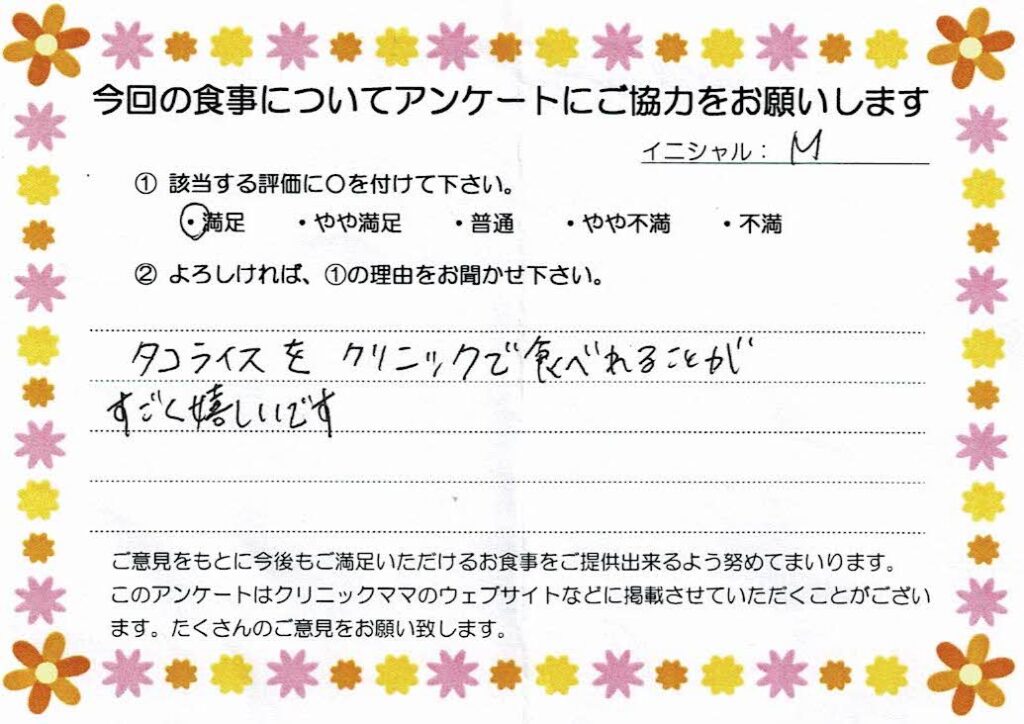 今回の食事についてアンケートにご協力をお願いします
イニシャル： M
① 該当する評価に〇を付けて下さい。
・満足 ・やや満足 ・普通 ・やや不満 ・不満
② よろしければ、①の理由をお聞かせ下さい。
タコライスを クリニックで食べれることが
すごく嬉しいです
ご意見をもとに今後もご満足いただけるお食事をご提供出来るよう努めてまいります。
このアンケートはクリニックママのウェブサイトなどに掲載させていただくことがござい
ます。たくさんのご意見をお願い致します。